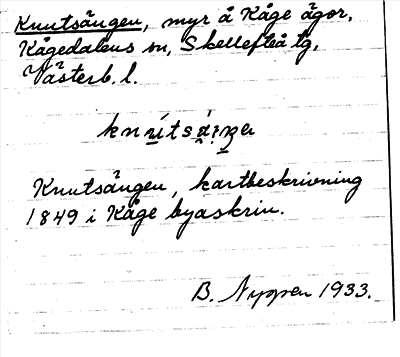 Knutsängen, myr å Kåge ägor,
Kågedalens sn, Skellefteå tg,
Västerb. l.
Knutsängen, kartbeskrivning
1849 i Kåge byaskrin.
B. Nyman 1933.